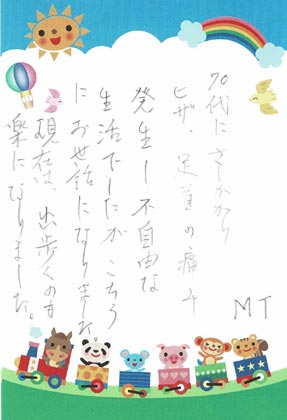 70代にさしかかり
ヒザ、足首の痛み
発生し不自由な
生活でしたがこちら
にお世話になりました
現在は、出歩くのも
楽になりました。
MT